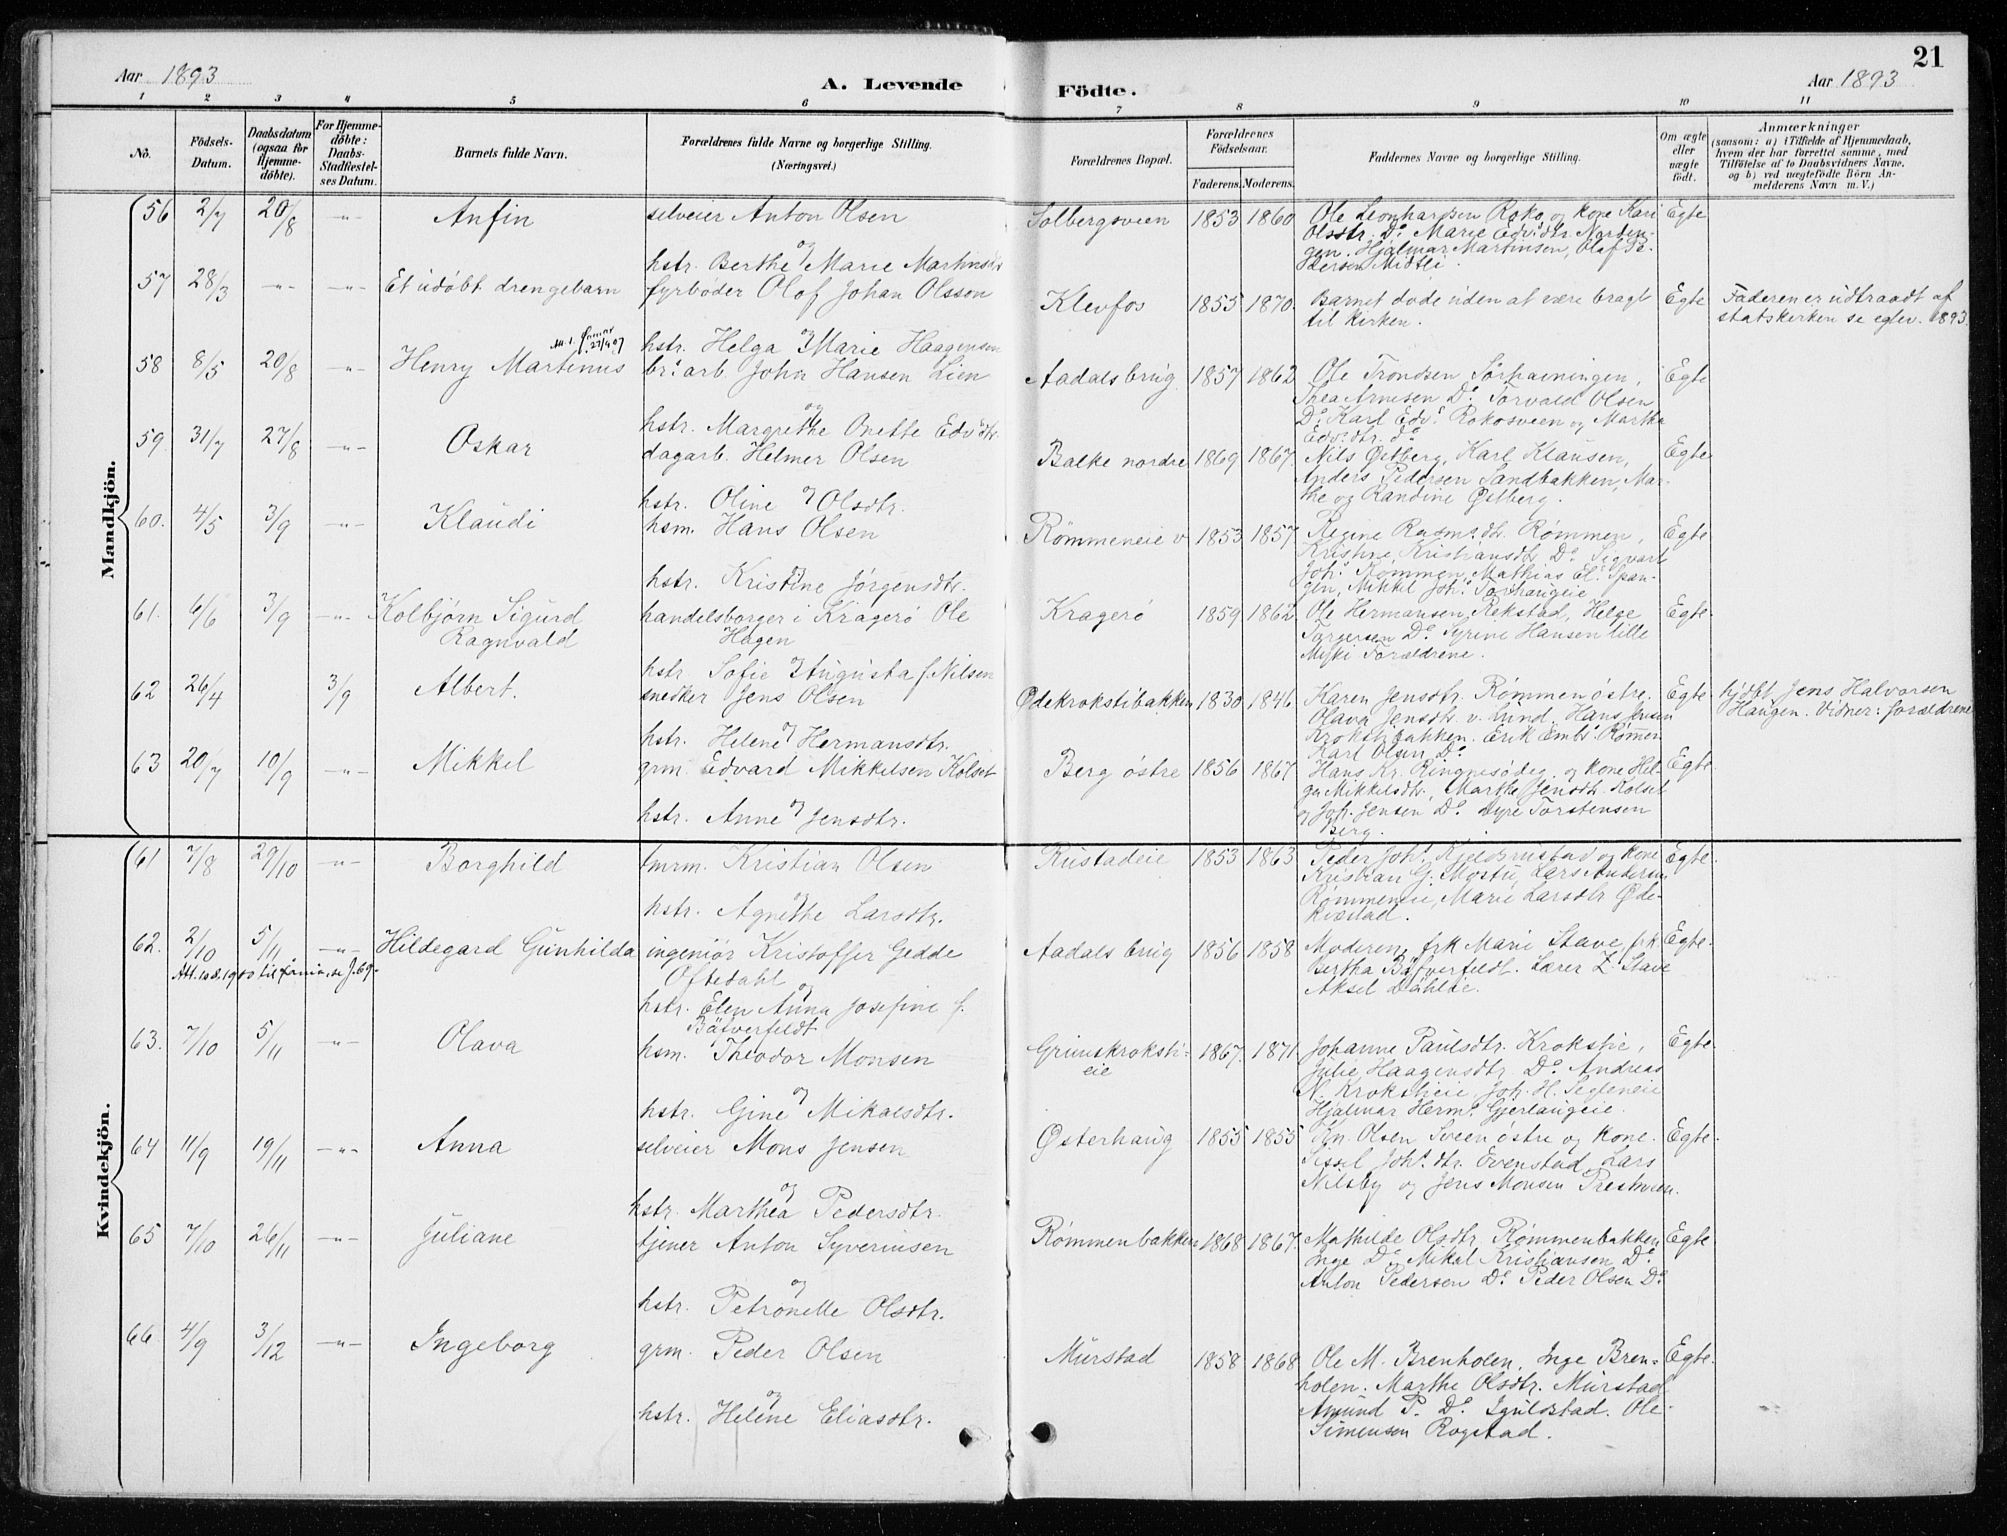 21
Aar 1893
A. Levende
Födte.
Aar 1893
1 2 3 4 5 6 7 8 9 10 11
No.
Födsels-Datum.
Daabsdatum (ogsaa for Hjemme-döbte).
For Hjemme-döbte: Daabs-Stadfæstel-ses Datum.
Barnets fulde Navn.
Forældrenes fulde Navne og borgerlige Stilling. (Næringsvei.)
Forældrenes Bopæl.
Forældrenes Födselsaar.
Faderens. Moderens.
Faddernes Navne og borgerlige Stilling.
Om ægte eller uægte födt.
Anmærkninger (saasom: a) i Tilfælde af Hjemmedaab, hvem der har forrettet samme, med Tilföielse af to Daabsvidners Navne, og b) ved uægtefödte Börn An-melderens Navn m. V.)
Mandkjön.
56 2/7 20/8 -"- Anfin selveier Anton Olsen Solbergsveen 1853 1860 Ole Leonhardsen Roko og kone Kari Egte
Olsdtr. Do Marie Edv.dtr. Norden-
gen. Hjalmar Martinsen, Olaf Pe-
og
hstr. Berthe Marie Martinsdtr. dersen Midtli.
57 28/3 -"- -"- Et udøbt drengebarn fyrbøder Olof Johan Olsson Klevfos 1855 1870. Barnet døde uden at være bragt til kirken. Egte Faderen er udtraadt af
statskirken se eglev. 1893.
og
hstr. Helga Marie Haagensen
58 8/5 20/8 -"- Henry Martinus br.arb. John Hansen Lien Aadals brug 1857 1862 Ole Trondsen Sørhavningen, Egte
27/4 07
Thea Arnesen Do Torvald Olsen
Do Karl Edv. Rokosveen og Martha
og
hstr. Margrethe Onette Edv.dtr. Edv.dtr. Do
59 31/7 27/8 -"- Oskar dagarb. Helmer Olsen Balke nordre 1869 1867. Nils Østberg, Karl Klausen, Egte
Anders Pedersen Sandbakken, Mar-
the og Randine Østberg.
og
hstr. Oline Olsdtr.
60. 4/5 3/9 -"- Klaudi hsm. Hans Olsen Rømmeneie v 1853 1857 Regine Rasm.dtr. Rømmen, Egte
Kristine Kristiansdtr. Do Sigvart
Joh. Rømmen, Mathias El. Span-
gen, Mikkel Joh.
og
hstr. Kristine Jørgensdtr.
61. 6/6 3/9 -"- Kolbjørn Sigurd handelsborger i Kragerø Ole Kragerø 1859 1862 Ole Hermansen Rekstad, Helge Egte
Ragnvald Hagen Torgersen Do Syrine Hansen lille
Forældrene.
og
hstr. Sofie Augusta f. Nilsen
62 26/4 3/9 Albert. snedker Jens Olsen Ødekrokstibakken 1830 1846 Karen Jensdtr. Rømmen østre. Egte hjdbt Jens Halvorsen
Olava Jensdtr. v. Lund. Hans Jensen Haugen. Vidner: forældrene
Krokstibakken. Erik Embr. Rømmen
Karl Olsen Do
og
hstr. Helene Hermansdtr.
63 20/7 10/9 -"- Mikkel grm. Edvard Mikkelsen Kolset Berg østre 1856 1867 Hans Kr. Ringnesødeg. og kone Hel- Egte
ga Mikkelsdtr. Marthe Jensdtr. Kolset
og Joh. Jensen Do Syver Torstensen
Berg.
og
hstr. Anne Jensdtr.
Kvindekjön.
61 7/8 29/10 -"- Borghild tmrm. Kristian Olsen Rustadeie 1853 1863 Peder Joh. Kjeldsrustad og kone Egte.
Kristian G. Mostu, Lars Andersen
Rømmeneie, Marie Larsdtr. Øde-
kvæstad.
og
hstr. Agnethe Larsdtr.
62. 2/10 5/11 -"- Hildegard Gunhilda ingeniør Kristoffer Gedde Aadals brug 1856 1858 Moderen, frk Marie Stave, frk Egte.
Oftedahl Bertha Bäfverfeldt. Lærer Z. Stave
Aksel Dahlde.
og
hstr. Elen Anna Josefine f.
Bäfverfeldt
63. 7/10 5/11 -"- Olava hsm. Theodor Monsen Grimskroksti- 1867. 1871 Johanne Paulsdtr. Krokstie, Egte.
eie Julie Haagensdtr. Do Andreas
N. Krokstieie Joh. H. Segleneie
Hjalmar Herm. Gjerlaugeie.
og
hstr. Gine Mikaelsdtr.
64 11/9 19/11 -"- Anna selveier Mons Jensen Østerhaug 1855 1855 Kn. Olsen Sveen østre og kone. Egte.
Sissel Joh.dtr. Evenstad, Lars
Nilsby og Jens Monsen Presteveen.
og
hstr. Marthea Pedersdtr.
65 7/10 26/11 -"- Juliane tjener Anton Syverinsen Rømmenbakken 1868 1867. Mathilde Olsdtr. Rømmenbakken Egte
Inge Do Mikal Kristiansen Do
Anton Pedersen Do Peder Olsen Do
og
hstr. Petronelle Olsdtr.
66 4/9 3/12 -"- Ingeborg grm. Peder Olsen Murstad 1858 1868 Ole M. Brenholen, Inge Bren- Egte.
holen. Marthe Olsdtr. Murstad
Amund P. Do Ole
Simensen Rogstad.
og
hstr. Helene Eliasdtr.